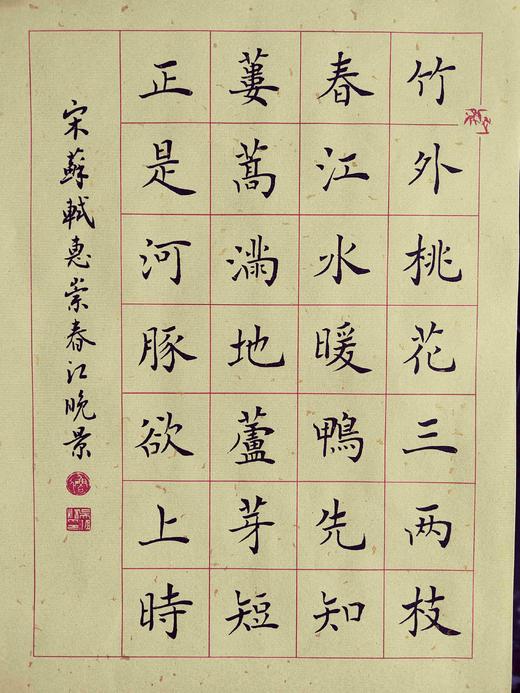 竹外桃花三两枝
春江水暖鴨先知
蔞蒿満地蘆芽短
正是河豚欲上時
宋蘇軾惠崇春江晚景